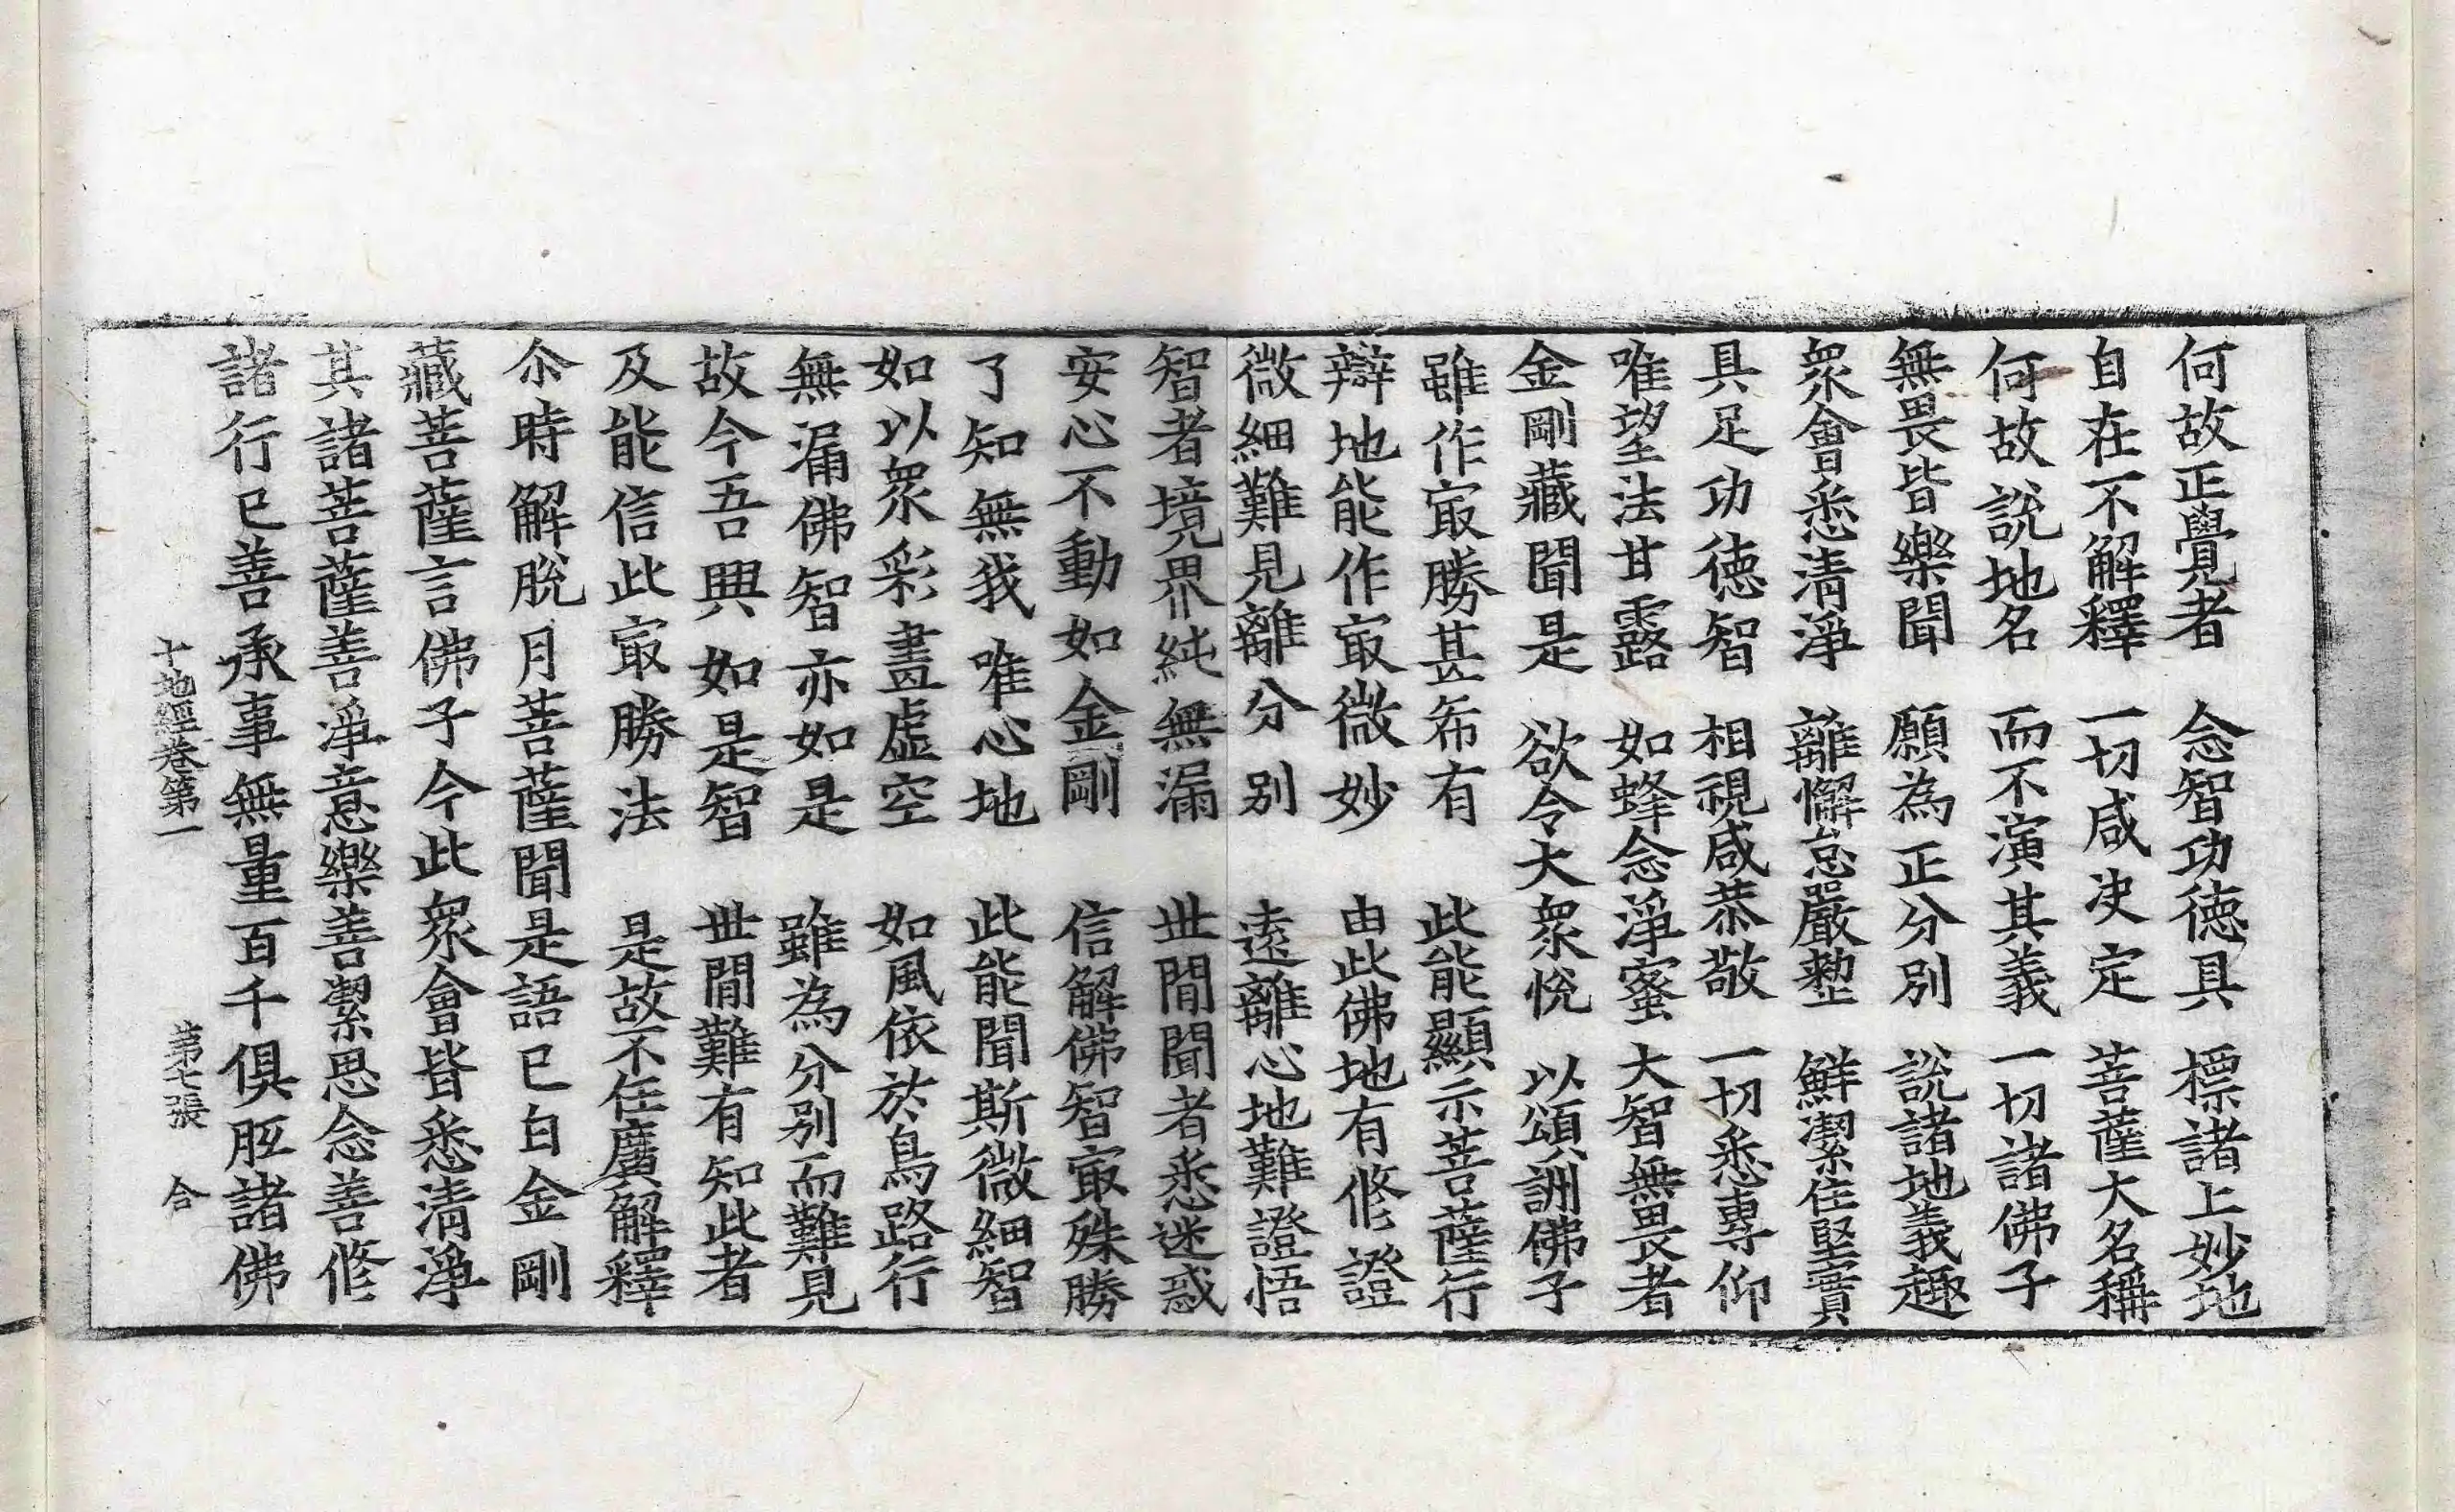 何故正覺者　念智功德具　標諸上妙地
自在不解釋　一切咸决定　菩薩大名稱
何故說地名　而不演其義　一切諸佛子
無畏皆樂聞　願為正分別　說諸地義趣
衆會悉清淨　離懈怠嚴整　鮮潔住堅實
具足功德智　相視咸恭敬　一切悉專仰
唯望法甘露　如蜂念淨蜜　大智無畏者
金剛藏聞是　欲令大衆悅　以頌詶佛子
雖作㝡勝甚希有　此能顯示菩薩行
辯地能作㝡微妙　由此佛地有修證
微細難見離分别　遠離心地難證悟
智者境界純無漏　丗間聞者悉迷惑
安心不動如金剛　信解佛智㝡殊勝
了知無我唯心地　此能聞斯微細智
如以衆彩畫虛空　如風依於鳥路行
無漏佛智亦如是　雖為分别而難見
故今吾興如是智　丗間難有知此者
及能信此㝡勝法　是故不任廣解釋
尒時解脫月菩薩聞是語已白金剛
藏菩薩言佛子今此衆會皆悉清淨
其諸菩薩善淨意樂善潔思念善修
諸行已善承事無量百千俱胝諸佛
十地經卷第一　第七張　合